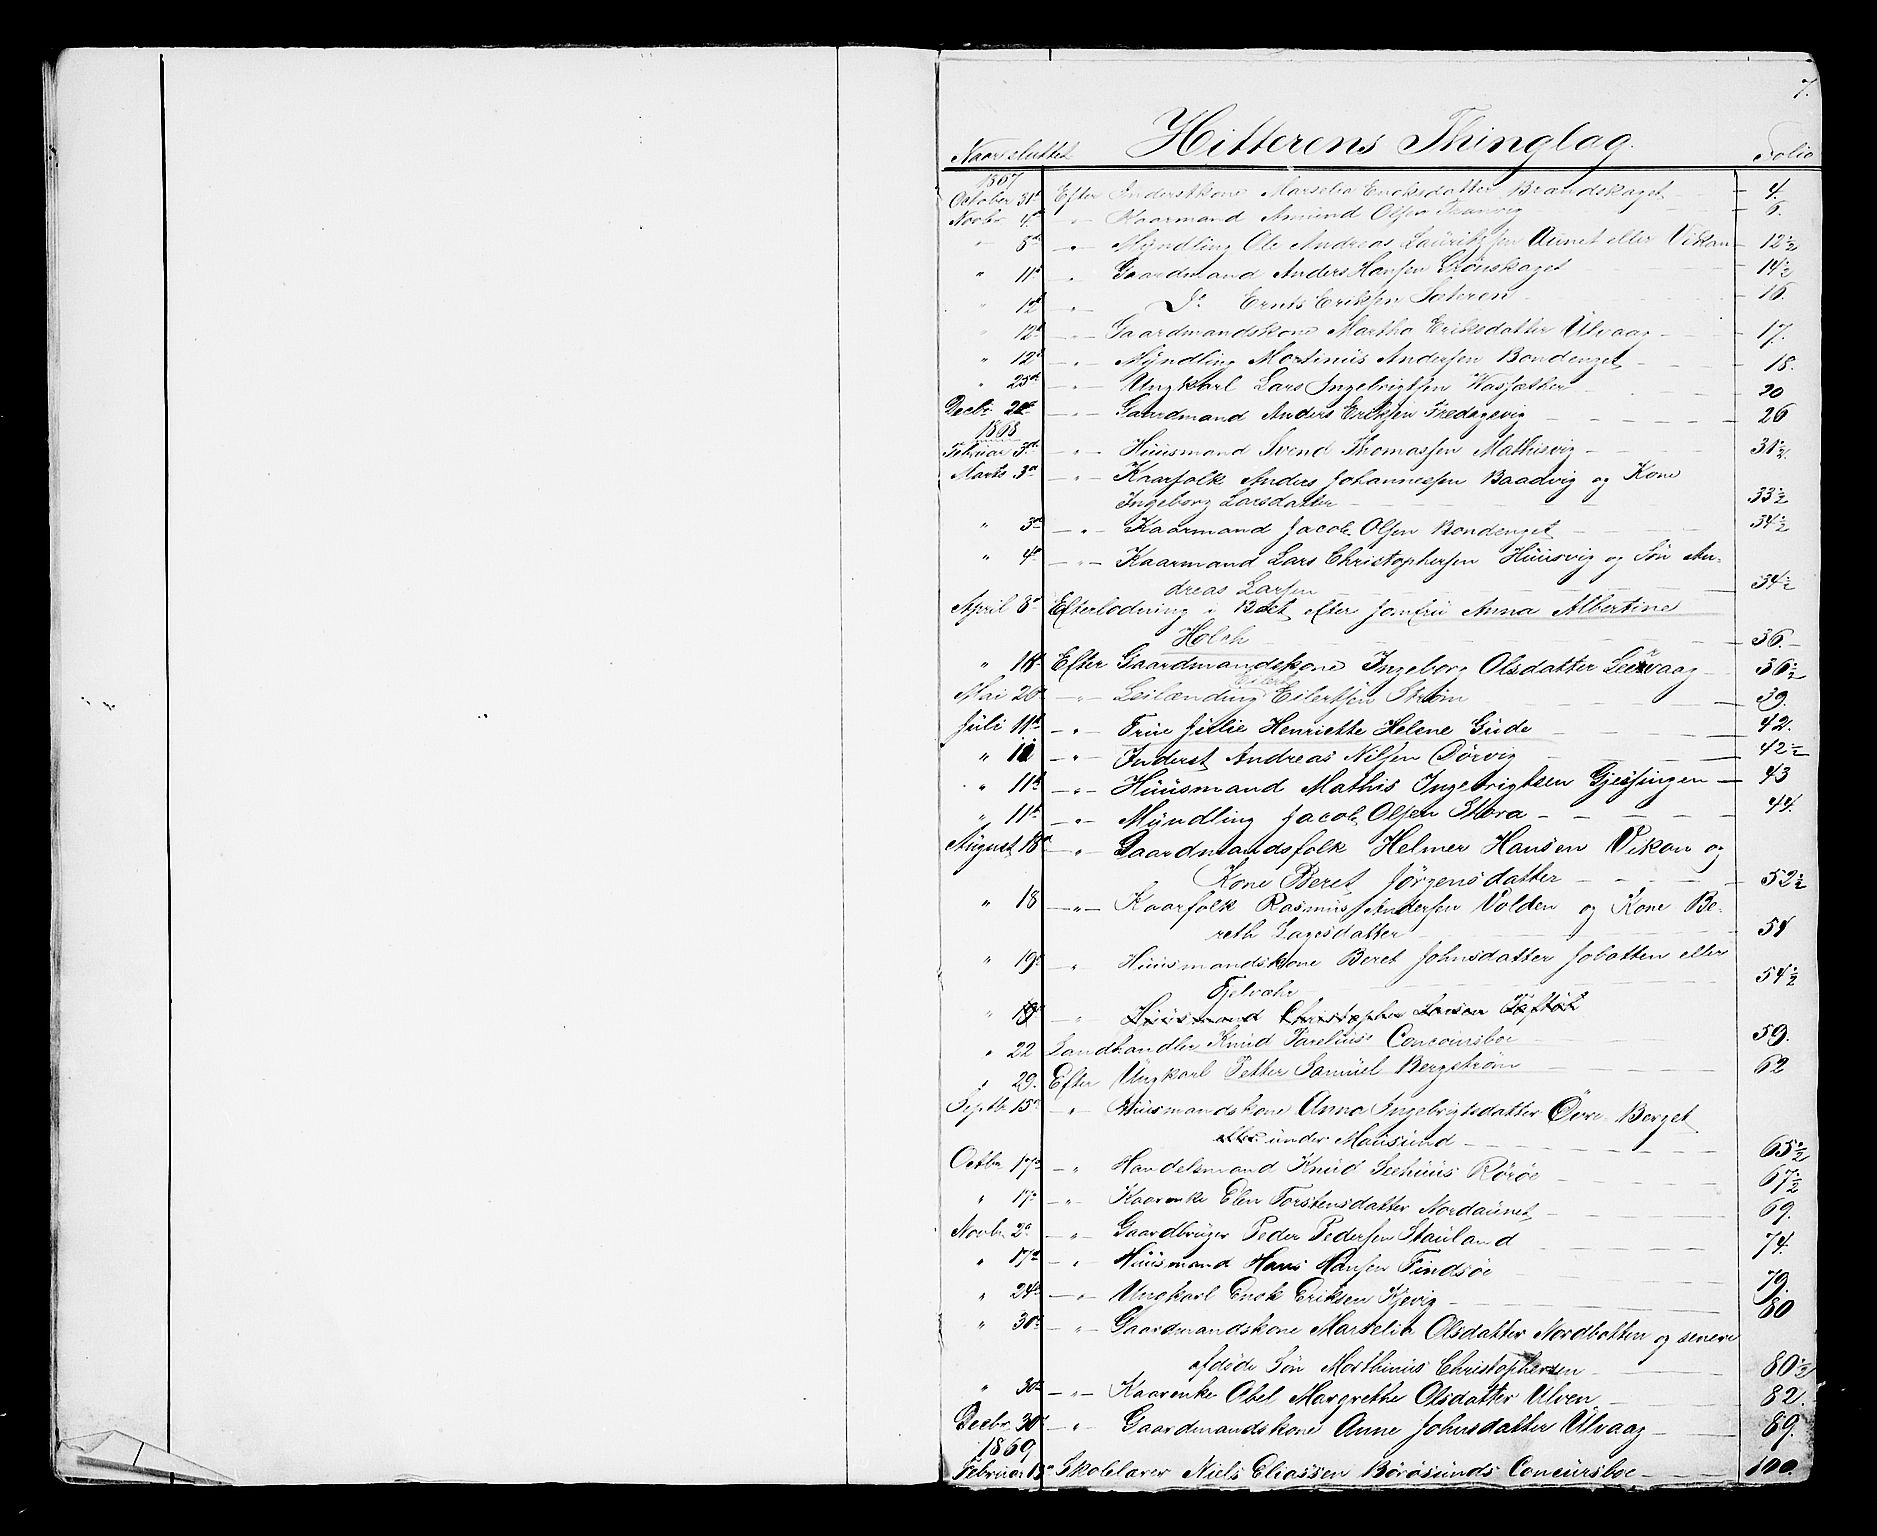 7.
Hitterens Thinglag.
Naar sluttet Folio
1867
October 31te Efter Inderstkone Marselia Enoksdatter Brandskaget — 4.
Novbr 4de " Kaarmand Amund Olsen Tranvig — 6.
" 5te " Myndling Ole Andreas Lauritzsen Aunet eller Vikan — 12½
" 11te " Gaardmand Anders Hansen Grønskaget — 14½
" 12te " Do Ernts Eriksen Sæteren — 16.
" 12te " Gaardmandskone Martha Eriksdatter Ulvaag — 17.
" 12te " Myndling Martinus Andersen Bondenget — 18.
" 25de " Ungkarl Lars Ingebrigtsen — 20
Decbr 2de " Gaardmand Anders Eriksen Fredagsvig — 26
1868
Februar 3de " Huusmand Svend Thomassen Mathisvig — 31½
Marts 3de " Kaarfolk Anders Johannessen Baadvig og Kone
Ingeborg Larsdatter — 33½
" 3de " Kaarmand Jacob Olsen Bondenget — 34½
" 4de " Kaarmand Lars Christophersen Huusvig og Søn An-
dreas Larsen — 34½
April 8de Efterlodering i Boet efter Jomfru Anna Albertine
Holch — 36.
" 18de Efter Gaardmandskone Ingeborg Olsdatter Leervaag — 36½
Eilert
Mai 20de " Leilænding Eilertsen Strøm — 39.
Juli 11te " Frue Julie Henriette Helene Gude — 42.
" 11 " Inderst Andreas Nilsen Dørvig — 42½
" 11te " Huusmand Mathis Ingebrigtsen Gjessingen — 43
" 11te " Myndling Jacob Olsen Stora — 44.
August 18de " Gaardmandsfolk Helmer Hansen Vikan og
Kone Beret Jørgensdatter — 52½
" 18 " Kaarfolk Rasmus Andersen Volden og Kone Be-
reth Lagesdatter — 54
" 19de " Huusmandskone Beret Johnsdatter Jobotten eller
Fjelvær — 54½
" 19 " Huusmand Christopher Larsen Tøftøh
" 22 Landhandler Knud Parelius's Concoursboe — 59.
" 29. Efter Ungkarl Petter Samuel Bergstrøm — 62
Septbr 15de " Huusmandskone Anna Ingebrigtsdatter Øvre Berget
eller under Mausund — 65½
Octbr 17de " Handelsmand Knud Seehuus Rørøe — 67½
" 17de " Kaarenke Elen Torstensdatter Nordaunet — 69.
Novbr 2de " Gaardbruger Peder Pedersen Stauland — 74.
" 17de " Huusmand Hans Hansen Findsøe — 79.
" 24de " Ungkarl Enok Eriksen Kjevig — 80
" 30te " Gaardmandskone Marselia Olsdatter Nordbotten og senere
afdøde Søn Morthinus Christophersen — 80½
" 30te " Kaarenke Abel Margrethe Olsdatter Ulven — 82.
Decbr 30te " Gaardmandskone Anne Johnsdatter Ulvaag — 89.
1869
Februar 15de Skolelærer Niels Eliassen Børøsunds Concursboe — 100.